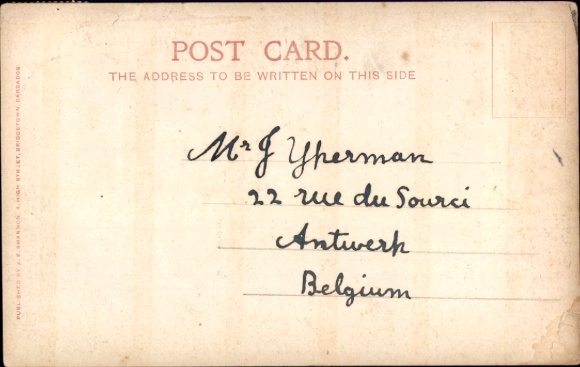 POST CARD.
THE ADDRESS TO BE WRITTEN ON THIS SIDE
Mr J Yperman
22 rue du Souci
Antwerp
Belgium
PUBLISHED BY SHANNON, HIGH STREET, BRIDGETOWN, BARBADOS.